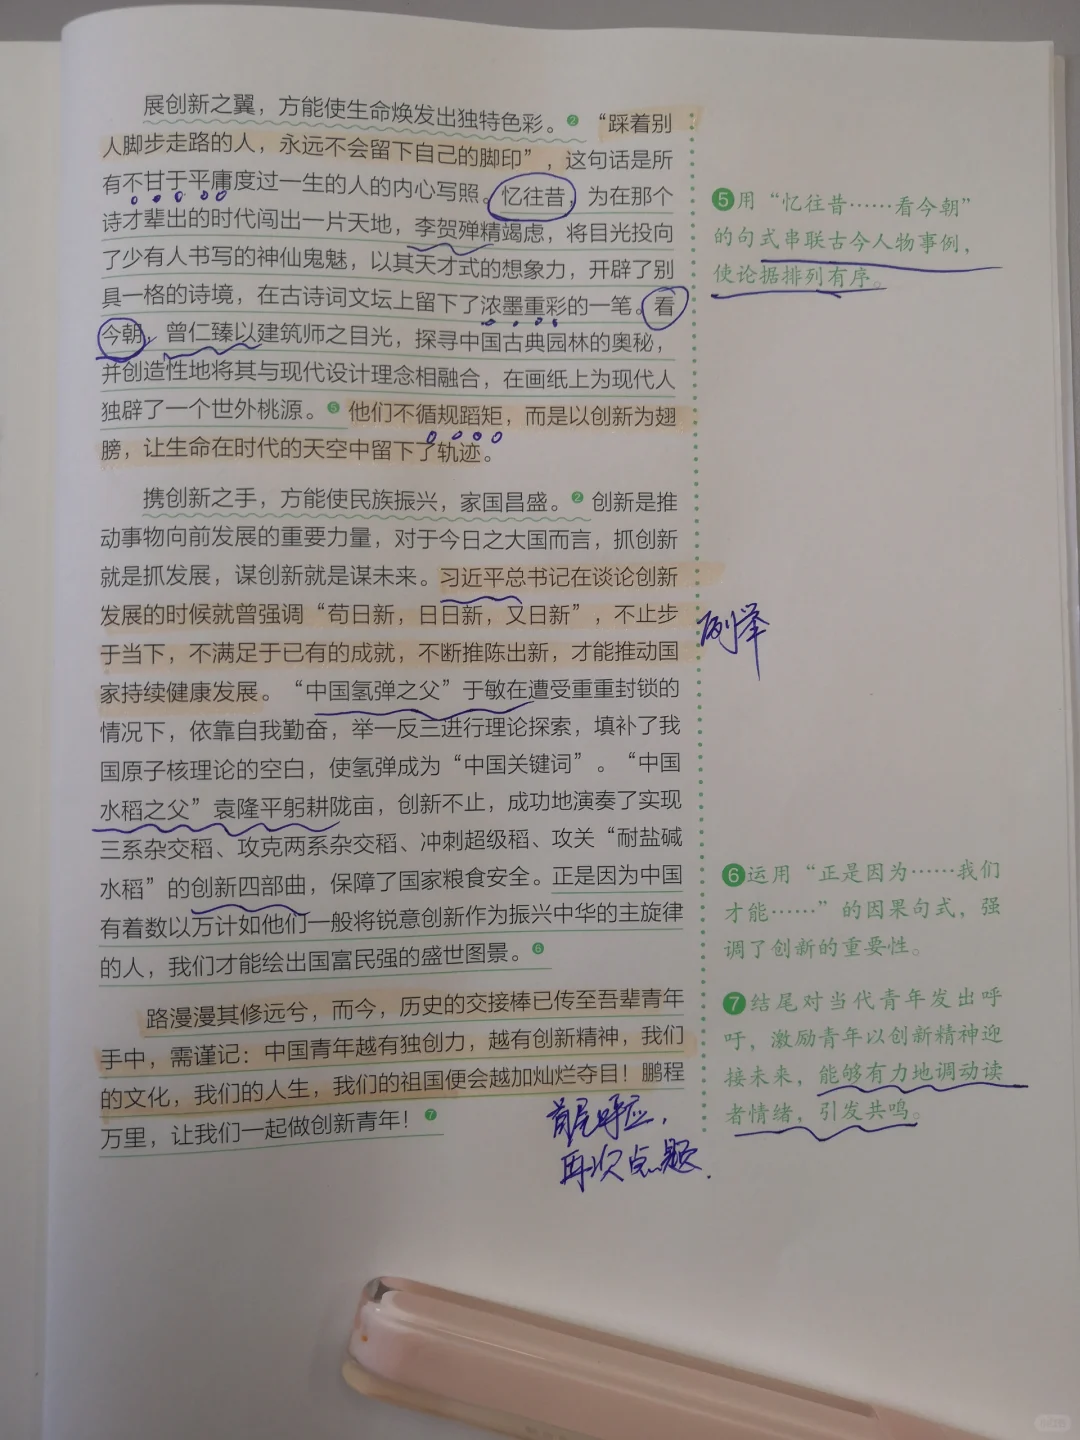 展创新之翼，方能使生命焕发出独特色彩。❷ “踩着别
人脚步走路的人，永远不会留下自己的脚印”，这句话是所
有不甘于平庸度过一生的人的内心写照。忆往昔，为在那个
诗才辈出的时代闯出一片天地，李贺殚精竭虑，将目光投向
了少有人书写的神仙鬼魅，以其天才式的想象力，开辟了别
具一格的诗境，在古诗词文坛上留下了浓墨重彩的一笔。看
今朝，曾仁臻以建筑师之目光，探寻中国古典园林的奥秘，
并创造性地将其与现代设计理念相融合，在画纸上为现代人
独辟了一个世外桃源。❺ 他们不循规蹈矩，而是以创新为翅
膀，让生命在时代的天空中留下了轨迹。
携创新之手，方能使民族振兴，家国昌盛。❷ 创新是推
动事物向前发展的重要力量，对于今日之大国而言，抓创新
就是抓发展，谋创新就是谋未来。习近平总书记在谈论创新
发展的时候就曾强调“苟日新，日日新，又日新”，不止步
于当下，不满足于已有的成就，不断推陈出新，才能推动国
家持续健康发展。“中国氢弹之父”于敏在遭受重重封锁的
情况下，依靠自我勤奋，举一反三进行理论探索，填补了我
国原子核理论的空白，使氢弹成为“中国关键词”。“中国
水稻之父”袁隆平躬耕陇亩，创新不止，成功地演奏了实现
三系杂交稻、攻克两系杂交稻、冲刺超级稻、攻关“耐盐碱
水稻”的创新四部曲，保障了国家粮食安全。正是因为中国
有着数以万计如他们一般将锐意创新作为振兴中华的主旋律
的人，我们才能绘出国富民强的盛世图景。❻
路漫漫其修远兮，而今，历史的交接棒已传至吾辈青年
手中，需谨记：中国青年越有独创力，越有创新精神，我们
的文化，我们的人生，我们的祖国便会越加灿烂夺目！鹏程
万里，让我们一起做创新青年！❼
首尾呼应，
再次点题.
❺用“忆往昔……看今朝”
的句式串联古今人物事例，
使论据排列有序。
列举
❻运用“正是因为……我们
才能……”的因果句式，强
调了创新的重要性。
❼结尾对当代青年发出呼
吁，激励青年以创新精神迎
接未来，能够有力地调动读
者情绪，引发共鸣。